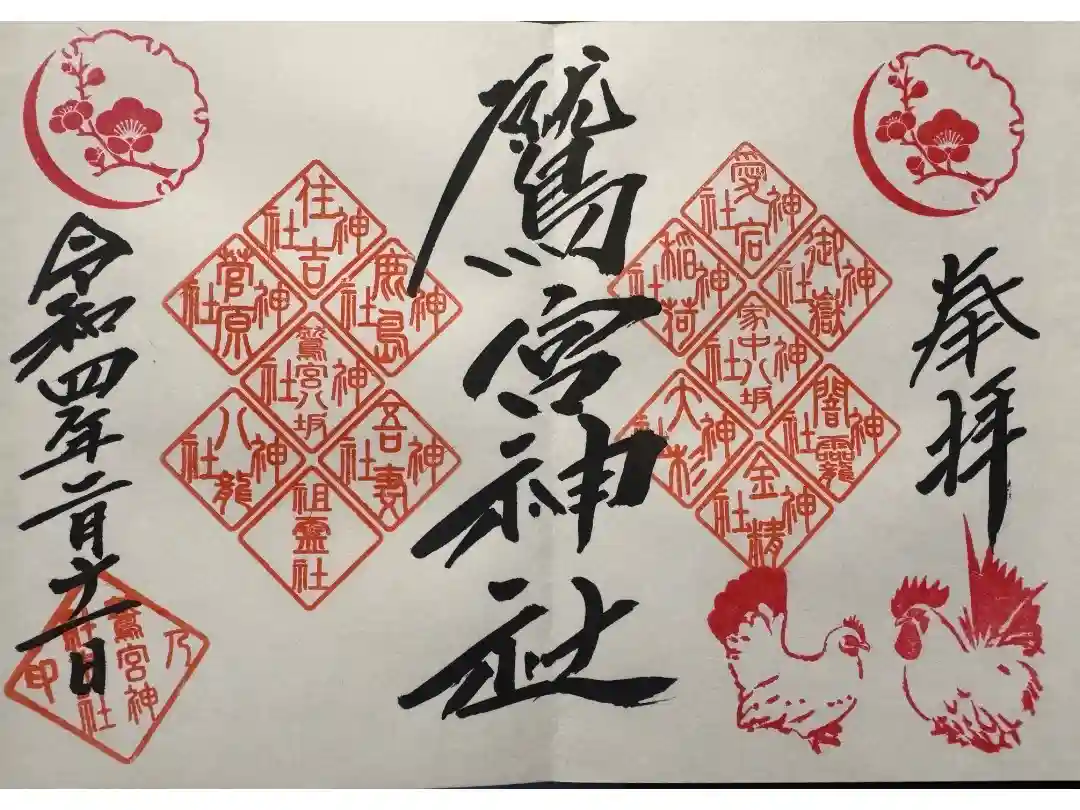 奉拝
愛宕神社
御嶽神社
稲荷神社
家中八坂神社
闇龗神社
大杉神社
金精神社
鷲宮神社
住吉神社
鹿島神社
菅原神社
鷲宮八坂神社
吾妻神社
八龍神社
祖霊社
令和四年二月十一日
鷲宮神社
乃印